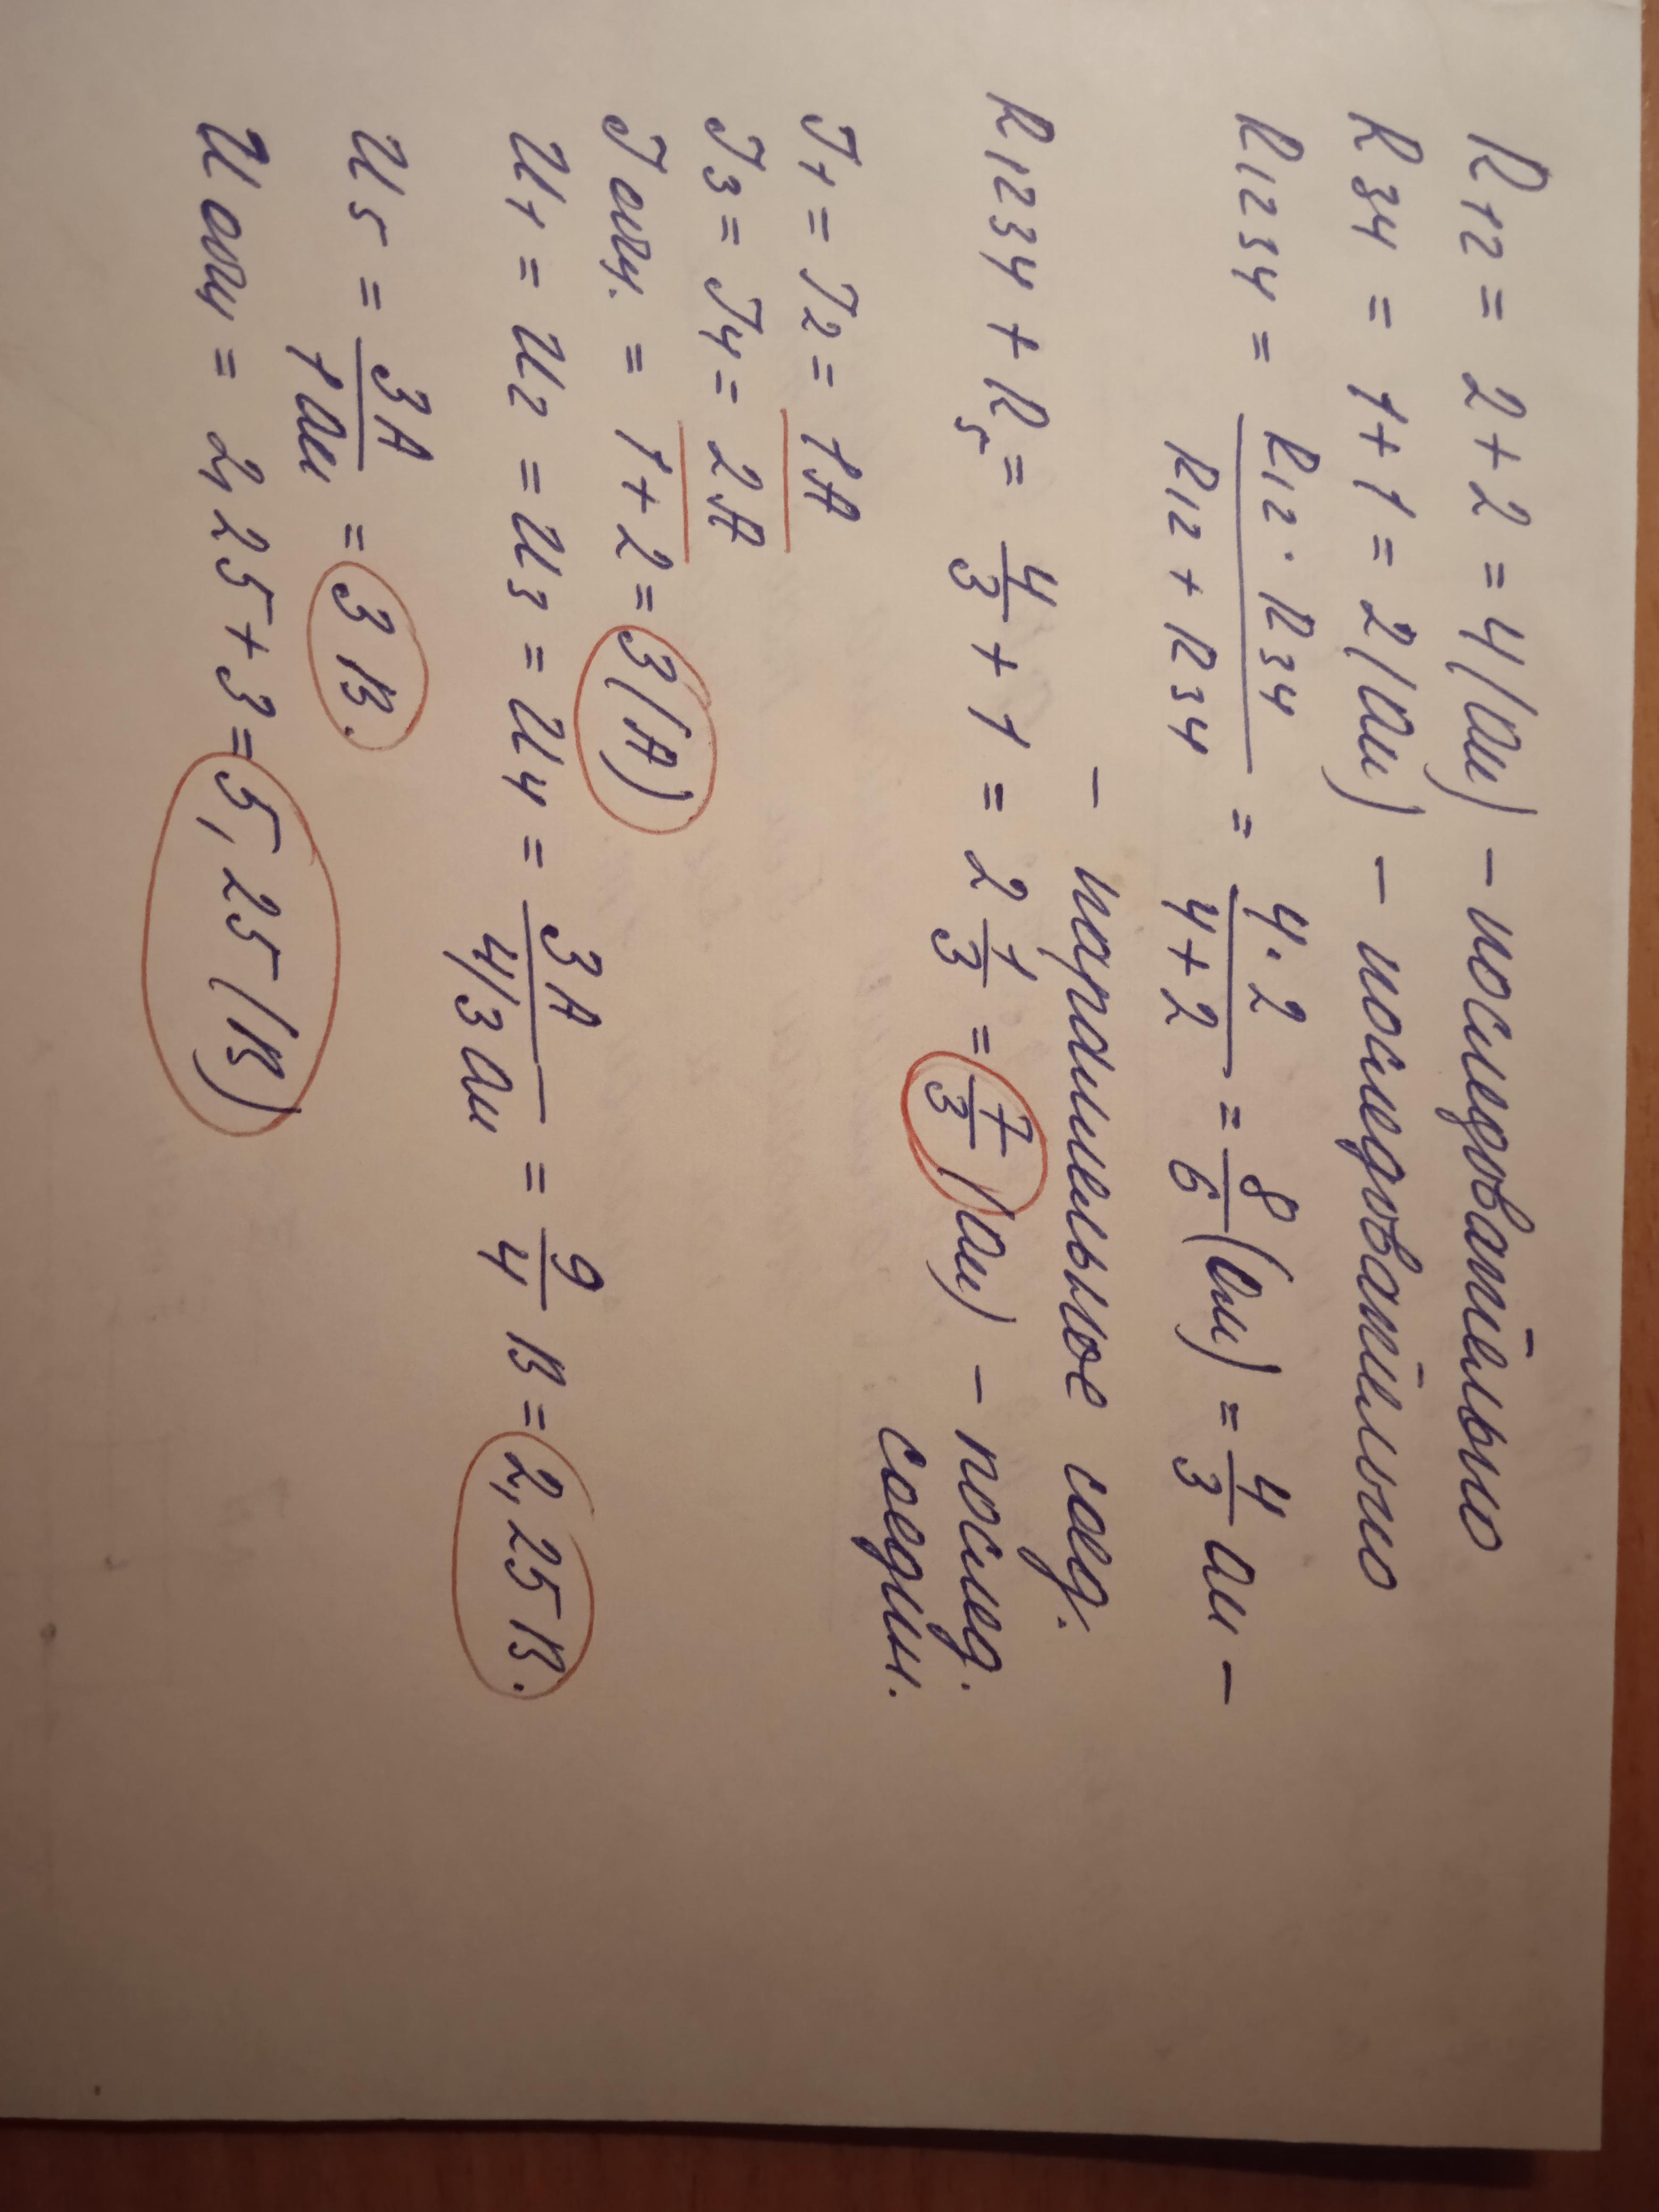 R12 = 2+2 = 4 (Ом) – последовательно
R34 = 1+1 = 2 (Ом) – последовательно
R1234 = R12 · R34 / R12 + R34 = 4·2 / 4+2 = 8/6 (Ом) = 4/3 Ом –
– параллельное соед.
R1234 + R5 = 4/3 + 1 = 2 1/3 = 7/3 (Ом) – послед.
соедин.
J1 = J2 = 1A
J3 = J4 = 2A
J общ. = 1+2 = 3 (A)
U1 = U2 = U3 = U4 = 3A / 4/3 Ом = 9/4 В = 2,25 В.
U5 = 3A / 1 Ом = 3 В.
U общ = 2,25+3 = 5,25 (В)